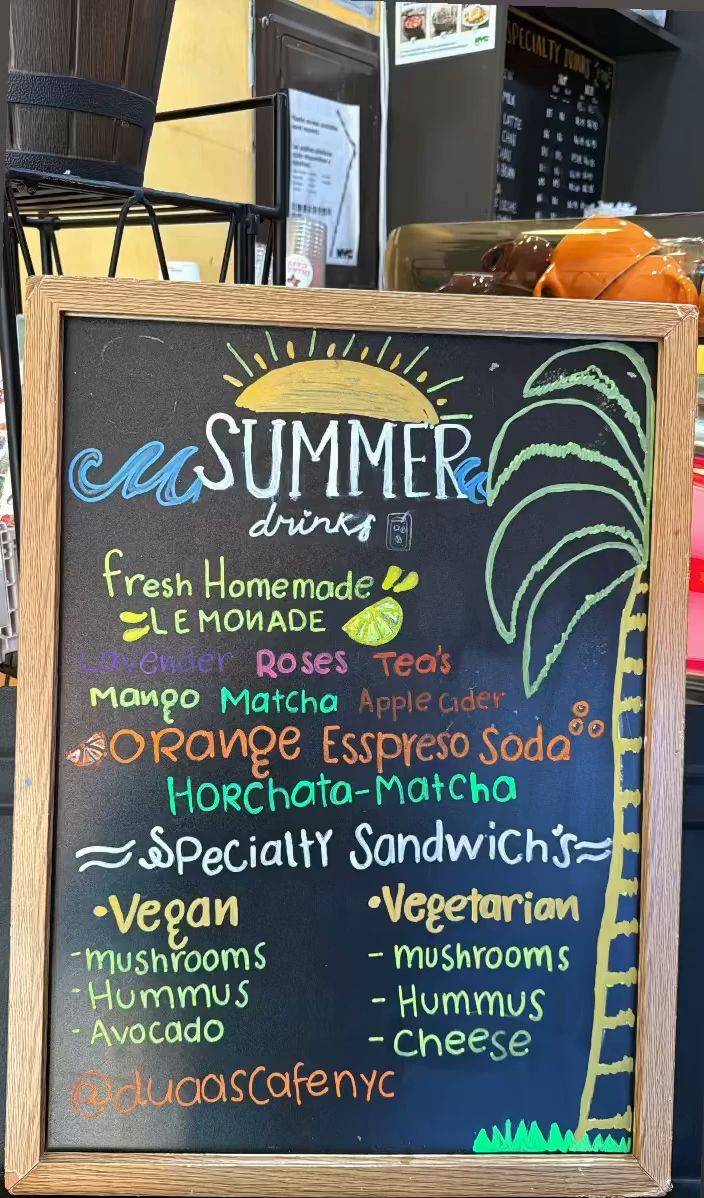 SPECIALTY DRINKS
MILK
LATTE
CHAI
NYC
SUMMER
drinks
fresh Homemade
LEMONADE
Lavender Roses Tea's
Mango Matcha Apple cider
Orange Esspreso Soda
Horchata-Matcha
Specialty Sandwich's
•Vegan
-mushrooms
-Hummus
-Avocado
•Vegetarian
-mushrooms
-Hummus
-Cheese
@duaascafenyc